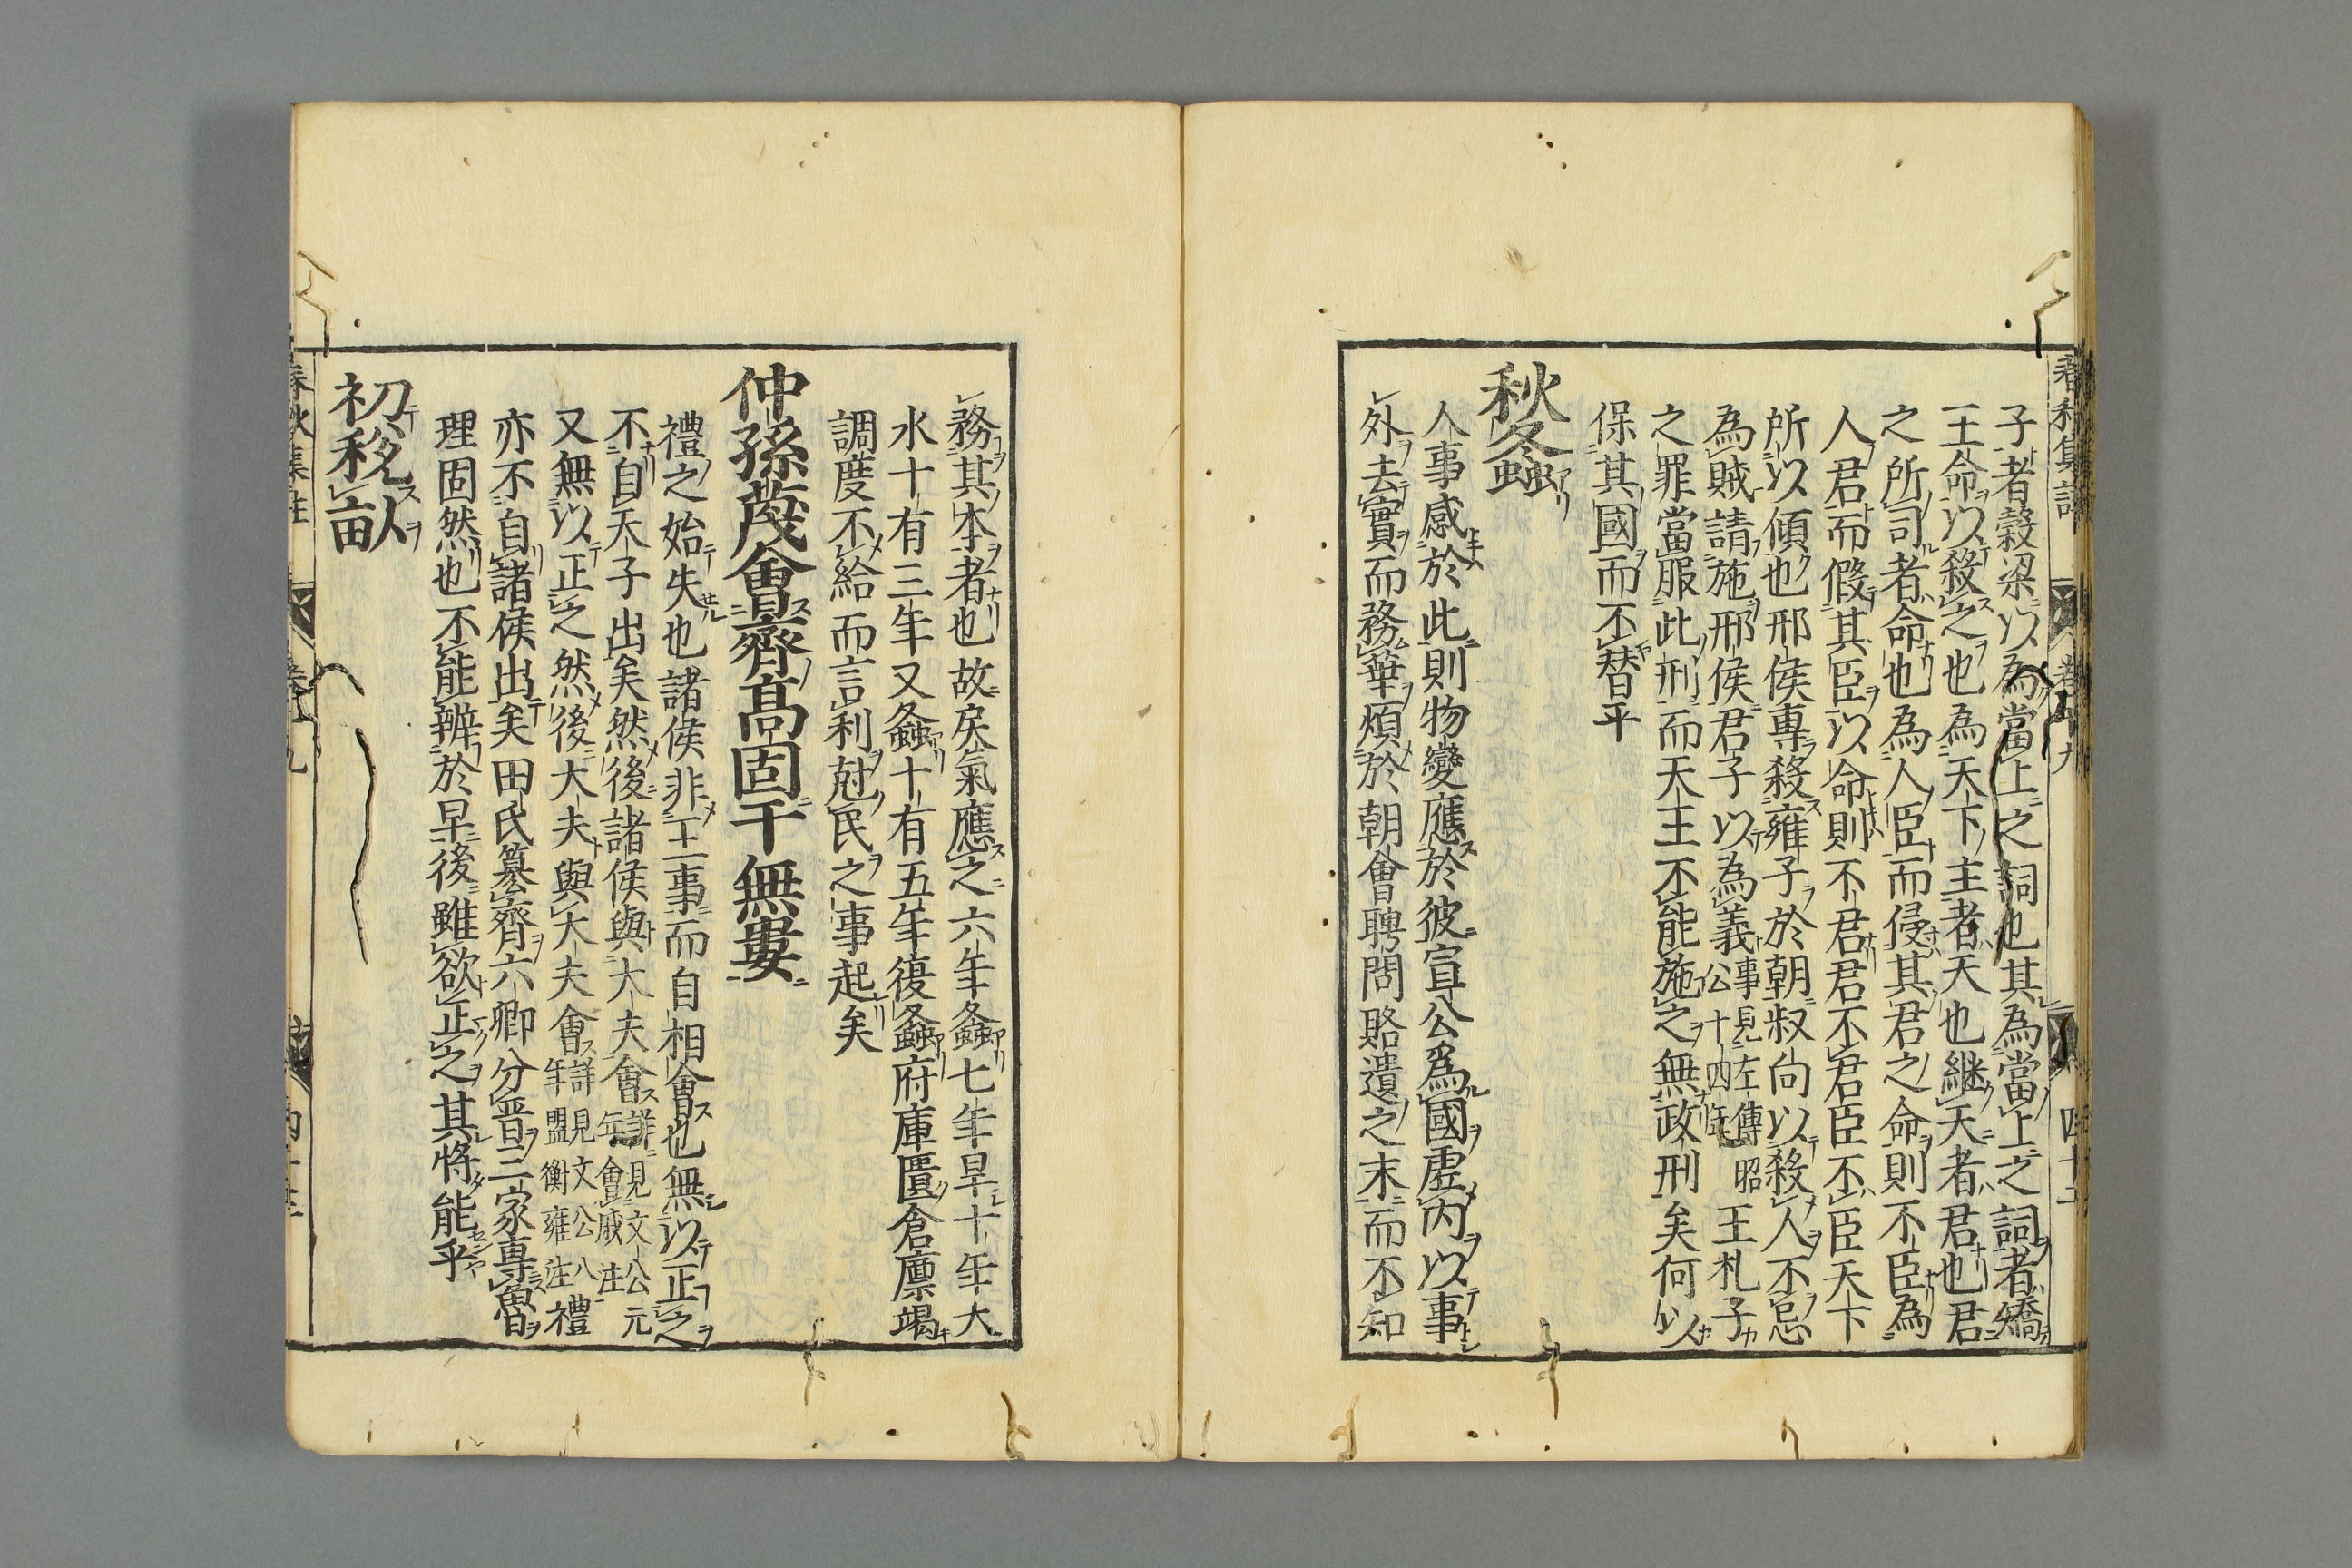 春秋集註
卷十九
子者穀梁以為當上之詞也其為當上之詞者矯
王命以殺之也為天下主者天也継天者君也君
之所司者命也為人臣而侵其君之命則不臣為
人君而假其臣以命則不君君不君臣不臣天下
所以傾也邢侯專殺雍子於朝叔向以殺人不忌
為賊請施邢侯君子以為義事見左傳昭公十四年王札子
之罪當服此刑而天王不能施之無政刑矣何以
保其國而不替乎
秋冬螽
人事感於此則物變應於彼宣公爲國虛內以事
外去實而務華煩於朝會聘問賂遺之末而不知
務其本者也故戾氣應之六年螽七年旱十年大
水十有三年又螽十有五年復螽府庫匱倉廩竭
調度不給而言利尅民之事起矣
仲孫蔑會齊髙固于無婁
禮之始失也諸侯非王事而自相會也無以正之
不自天子出矣然後諸侯與大夫會詳見文公元年會戚注
又無以正之然後大夫與大夫會詳見文公八年盟衡雍注禮
亦不自諸侯出矣田氏簒齊六卿分晋三家專魯
理固然也不能辨於早後雖欲正之其將能乎
初稅畝
春秋集註